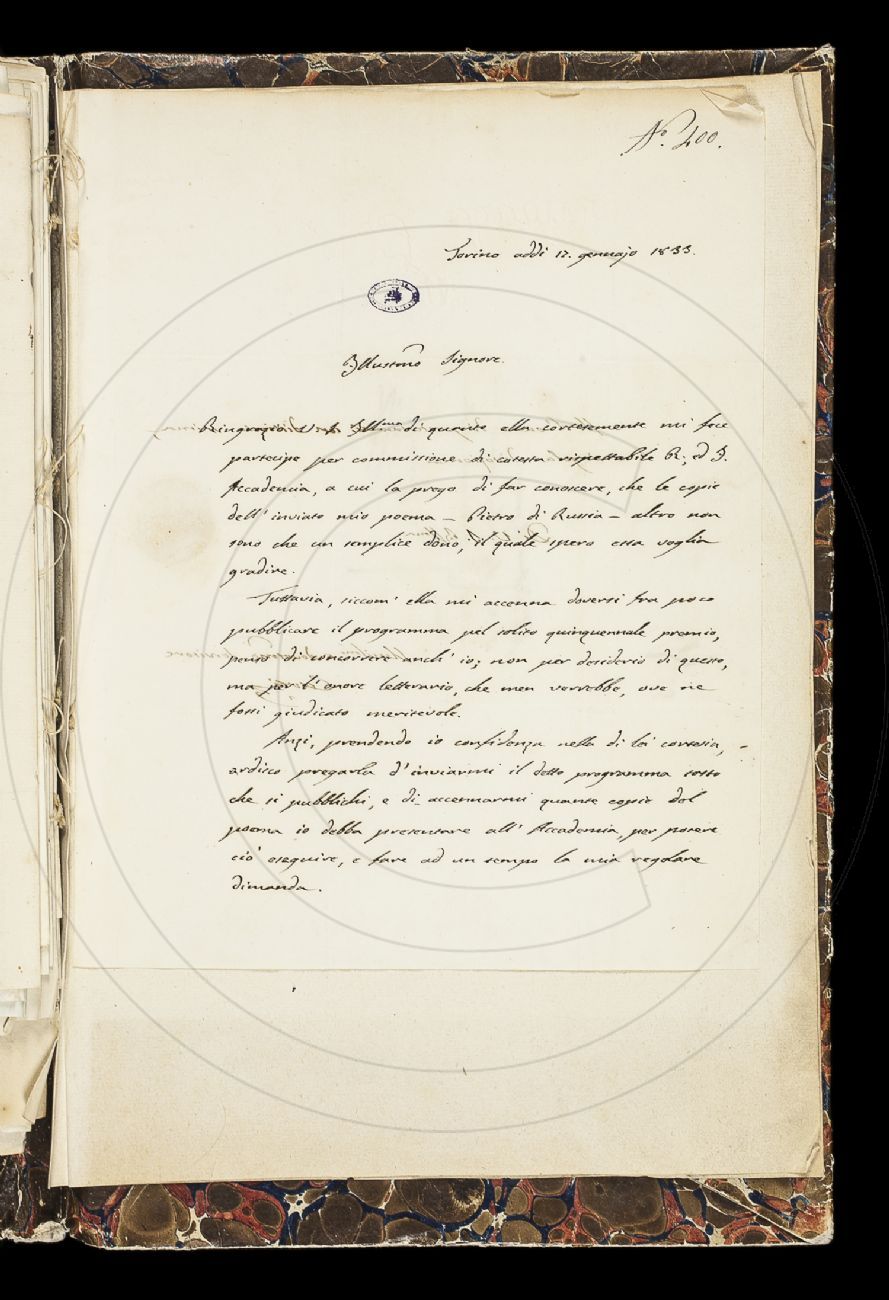 N.º 400.
Torino addì 17. gennajo 1833.
Illustrmo Signore.
Ringrazio V. S. Ill.ma di quanto ella cortesemente mi fece
partecipe per commissione di cotesta rispettabile R., ed I.
Accademia, a cui la prego di far conoscere, che le copie
dell' inviato mio poema – Pietro di Russia – altro non
sono che un semplice dono, il quale spero essa voglia
gradire.
Tuttavia, siccom' ella mi accenna doversi fra poco
pubblicare il programma pel solito quinquennale premio,
penso di concorrere anch' io; non per desiderio di questo,
ma per l' onore letterario, che men verrebbe, ove ne
fossi giudicato meritevole.
Anzi, prendendo io confidenza nella di lei cortesia,
ardisco pregarla d' inviarmi il detto programma tosto
che si pubblichi, e di accennarmi quante copie del
poema io debba presentare all' Accademia, per potere
ciò eseguire, e fare ad un tempo la mia regolare
dimanda.